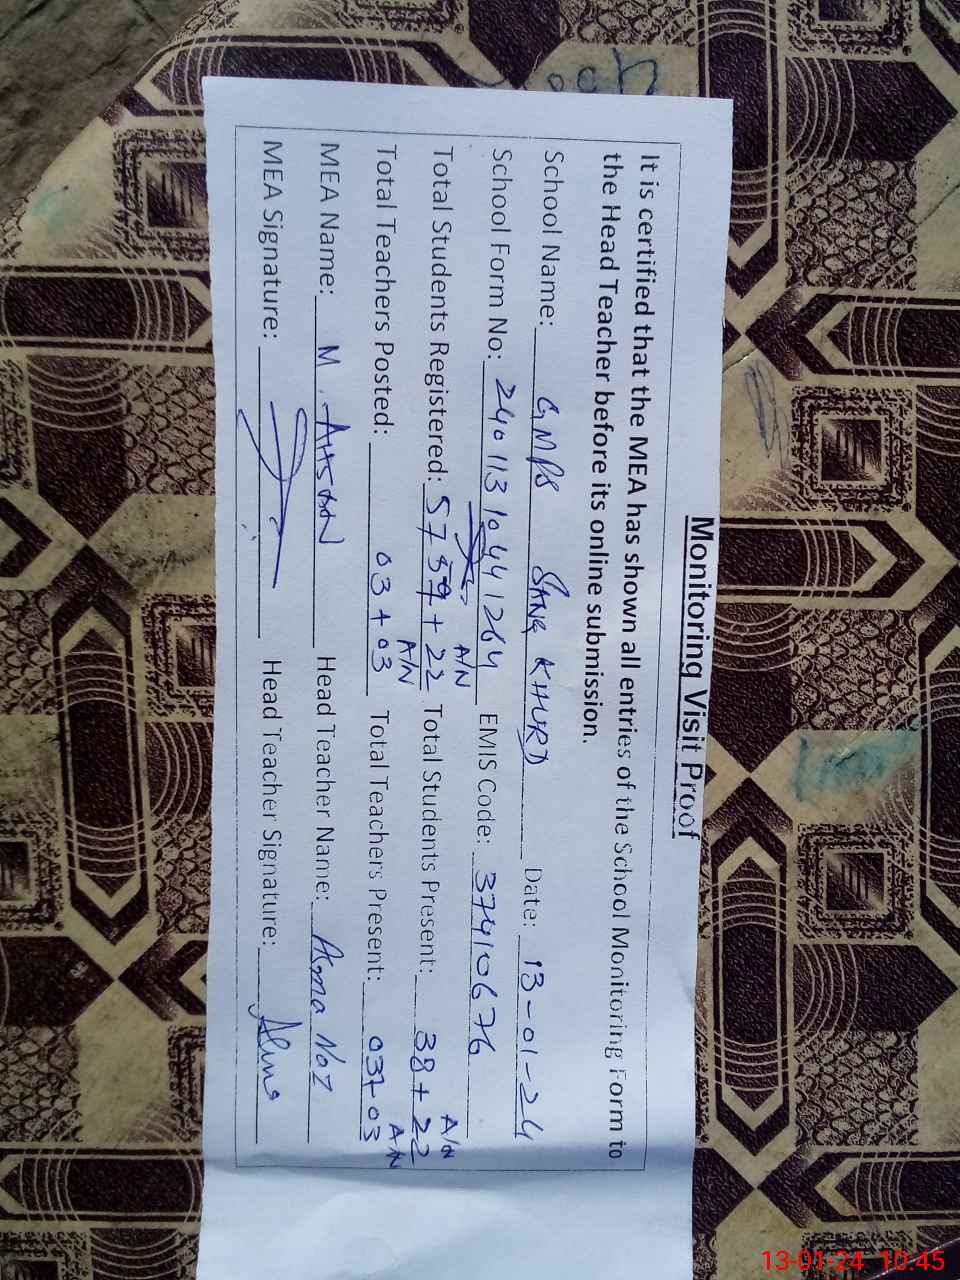 Monitoring Visit Proof
It is certified that the MEA has shown all entries of the School Monitoring Form to
the Head Teacher before its online submission.
School Name: GMPS SANG KHURD Date: 13-01-24
School Form No: 24011310441264 EMIS Code: 37410676
A/N A/N
Total Students Registered: 57 59 + 22 Total Students Present: 38 + 22
A/N A/N
Total Teachers Posted: 03 + 03 Total Teachers Present: 03+03
MEA Name: M. AHSAN Head Teacher Name: Asma Naz
MEA Signature: Head Teacher Signature:
13-01-24 10:45